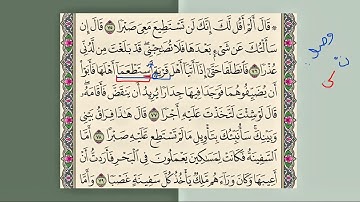 ۞ قَالَ أَلَمْ أَقُل لَّكَ إِنَّكَ لَن تَسْتَطِيعَ مَعِيَ صَبْرًا ٧٥ قَالَ إِن
سَأَلْتُكَ عَن شَيْءٍۭ بَعْدَهَا فَلَا تُصَٰحِبْنِى ۖ قَدْ بَلَغْتَ مِن لَّدُنِّى
عُذْرًا ٧٦ فَٱنطَلَقَا حَتَّىٰٓ إِذَآ أَتَيَآ أَهْلَ قَرْيَةٍ ٱسْتَطْعَمَآ أَهْلَهَا فَأَبَوْا۟
أَن يُضَيِّفُوهُمَا فَوَجَدَا فِيهَا جِدَارًا يُرِيدُ أَن يَنقَضَّ فَأَقَامَهُۥ ۖ
قَالَ لَوْ شِئْتَ لَتَّخَذْتَ عَلَيْهِ أَجْرًا ٧٧ قَالَ هَٰذَا فِرَاقُ بَيْنِى
وَبَيْنِكَ ۚ سَأُنَبِّئُكَ بِتَأْوِيلِ مَا لَمْ تَسْتَطِع عَّلَيْهِ صَبْرًا ٧٨ أَمَّا
ٱلسَّفِينَةُ فَكَانَتْ لِمَسَٰكِينَ يَعْمَلُونَ فِى ٱلْبَحْرِ فَأَرَدتُّ أَنْ
أَعِيبَهَا وَكَانَ وَرَآءَهُم مَّلِكٌ يَأْخُذُ كُلَّ سَفِينَةٍ غَصْبًا ٧٩ وَأَمَّا
وصلا: